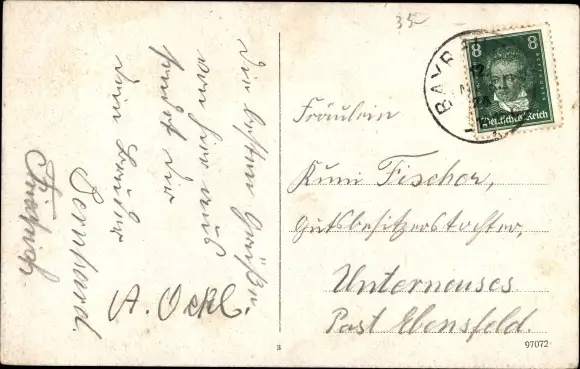 Die besten Grüße
von hier aus
sendet Dir
Dein Bruder
Bernhard
A. Ockl.
35
BAYR
8 8
Deutsches Reich
Fräulein
Kuni Fischer,
Gutsbesitzerstochter,
Unterneuses
Post Ebensfeld.
3
97072